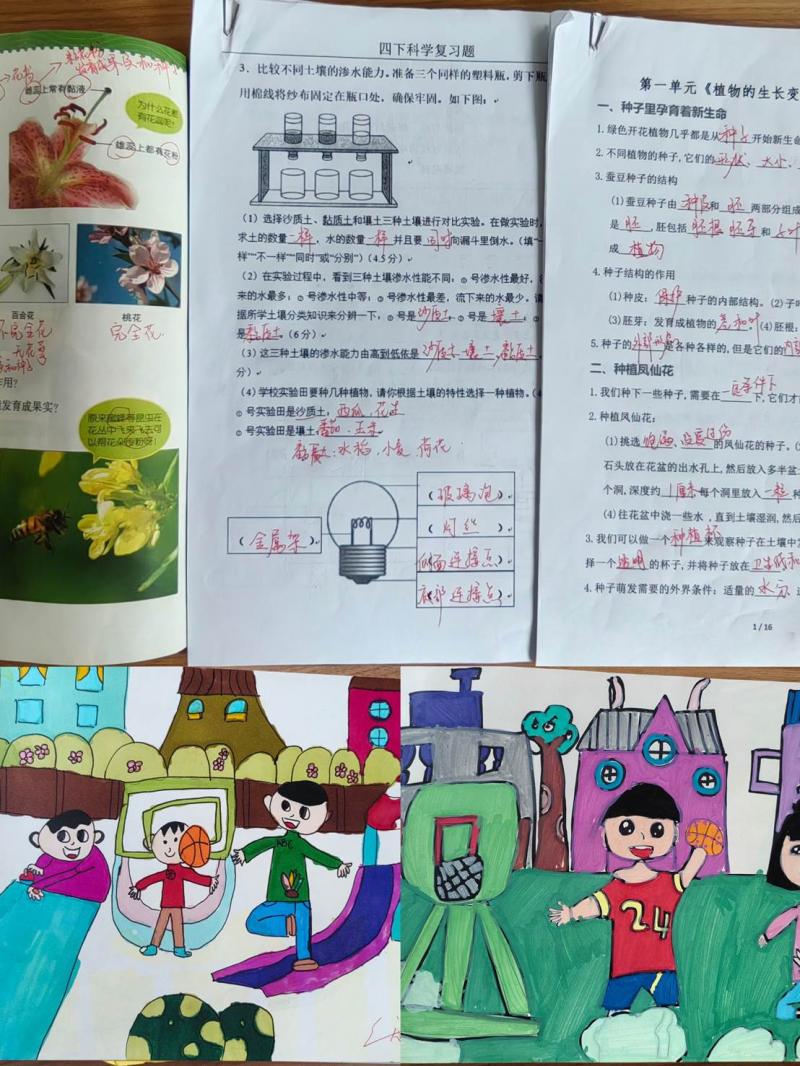 花粉
发育成果实和种子
雌蕊上常有黏液
为什么花都
有花蕊呢？
雄蕊上都有花粉
百合花
桃花
不完全花
完全花
无花萼
作用？
发育成果实？
原来蜜蜂等昆虫在
花丛中飞来飞去可
以帮花朵传粉呀！
四下科学复习题
3、比较不同土壤的渗水能力。准备三个同样的塑料瓶，剪下瓶
用棉线将纱布固定在瓶口处，确保牢固。如下图：
(1) 选择沙质土、黏质土和壤土三种土壤进行对比实验。在做实验时，
求土的数量一样，水的数量一样并且要同时向漏斗里倒水。（填“一
样”“不一样”“同时”或“分别”）（4.5分）
(2) 在实验过程中，看到三种土壤渗水性能不同：①号渗水性最好，
来的水最多；②号渗水性中等；③号渗水性最差，流下来的水最少。请
据所学土壤分类知识来分辨一下，①号是沙质土，②号是壤土，
是黏质土。（6分）
(3) 这三种土壤的渗水能力由高到低依是沙质土、壤土、黏质土
分）
(4) 学校实验田要种几种植物，请你根据土壤的特性选择一种植物。（4
①号实验田是沙质土：西瓜、花生
②号实验田是壤土：番茄、玉米
黏质土：水稻、小麦、荷花
（玻璃泡）
（灯丝）
（金属架）
侧面连接点）
底部连接点）
第一单元《植物的生长变
一、种子里孕育着新生命
1.绿色开花植物几乎都是从种子开始新生命
2.不同植物的种子，它们的形状、大小、
3.蚕豆种子的结构
(1)蚕豆种子由种皮和胚两部分组成
是胚，胚包括胚根、胚芽和子叶
成植物
4.种子结构的作用
(1)种皮：保护种子的内部结构。(2)子叶
(3)胚芽：发育成植物的茎和叶(4)胚根：
5.种子的外部形态是各种各样的，但是它们的内部
二、种植凤仙花
1.我们种下一些种子，需要在一定条件下，它们才
2.种植凤仙花：
(1)挑选饱满、没受损伤的凤仙花的种子。
石头放在花盆的出水孔上，然后放入多半盆
个洞，深度约1厘米每个洞里放入一粒种
(4)往花盆中浇一些水，直到土壤湿润，然后
3.我们可以做一个种植杯来观察种子在土壤中
择一个透明的杯子，并将种子放在卫生纸和
4.种子萌发需要的外界条件：适量的水分、适
1 / 16
ABC
24